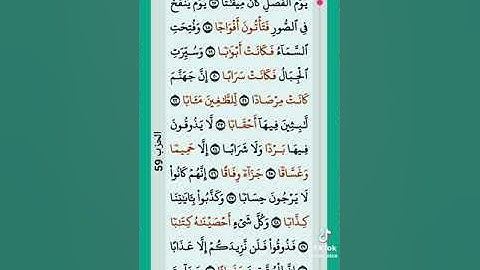 يَوْمَ ٱلْفَصْلِ كَانَ مِيقَـٰتًا ١٧ يَوْمَ يُنفَخُ
فِى ٱلصُّورِ فَتَأْتُونَ أَفْوَاجًا ١٨ وَفُتِحَتِ
ٱلسَّمَآءُ فَكَانَتْ أَبْوَٰبًا ١٩ وَسُيِّرَتِ
ٱلْجِبَالُ فَكَانَتْ سَرَابًا ٢٠ إِنَّ جَهَنَّمَ
كَانَتْ مِرْصَادًا ٢١ لِّلطَّـٰغِينَ مَـَٔابًا ٢٢
لَّـٰبِثِينَ فِيهَآ أَحْقَابًا ٢٣ لَّا يَذُوقُونَ
فِيهَا بَرْدًا وَلَا شَرَابًا ٢٤ إِلَّا حَمِيمًا
وَغَسَّاقًا ٢٥ جَزَآءً وِفَاقًا ٢٦ إِنَّهُمْ كَانُوا۟
لَا يَرْجُونَ حِسَابًا ٢٧ وَكَذَّبُوا۟ بِـَٔايَـٰتِنَا
كِذَّابًا ٢٨ وَكُلَّ شَىْءٍ أَحْصَيْنَـٰهُ كِتَـٰبًا
٢٩ فَذُوقُوا۟ فَلَن نَّزِيدَكُمْ إِلَّا عَذَابًا
الحزب 59